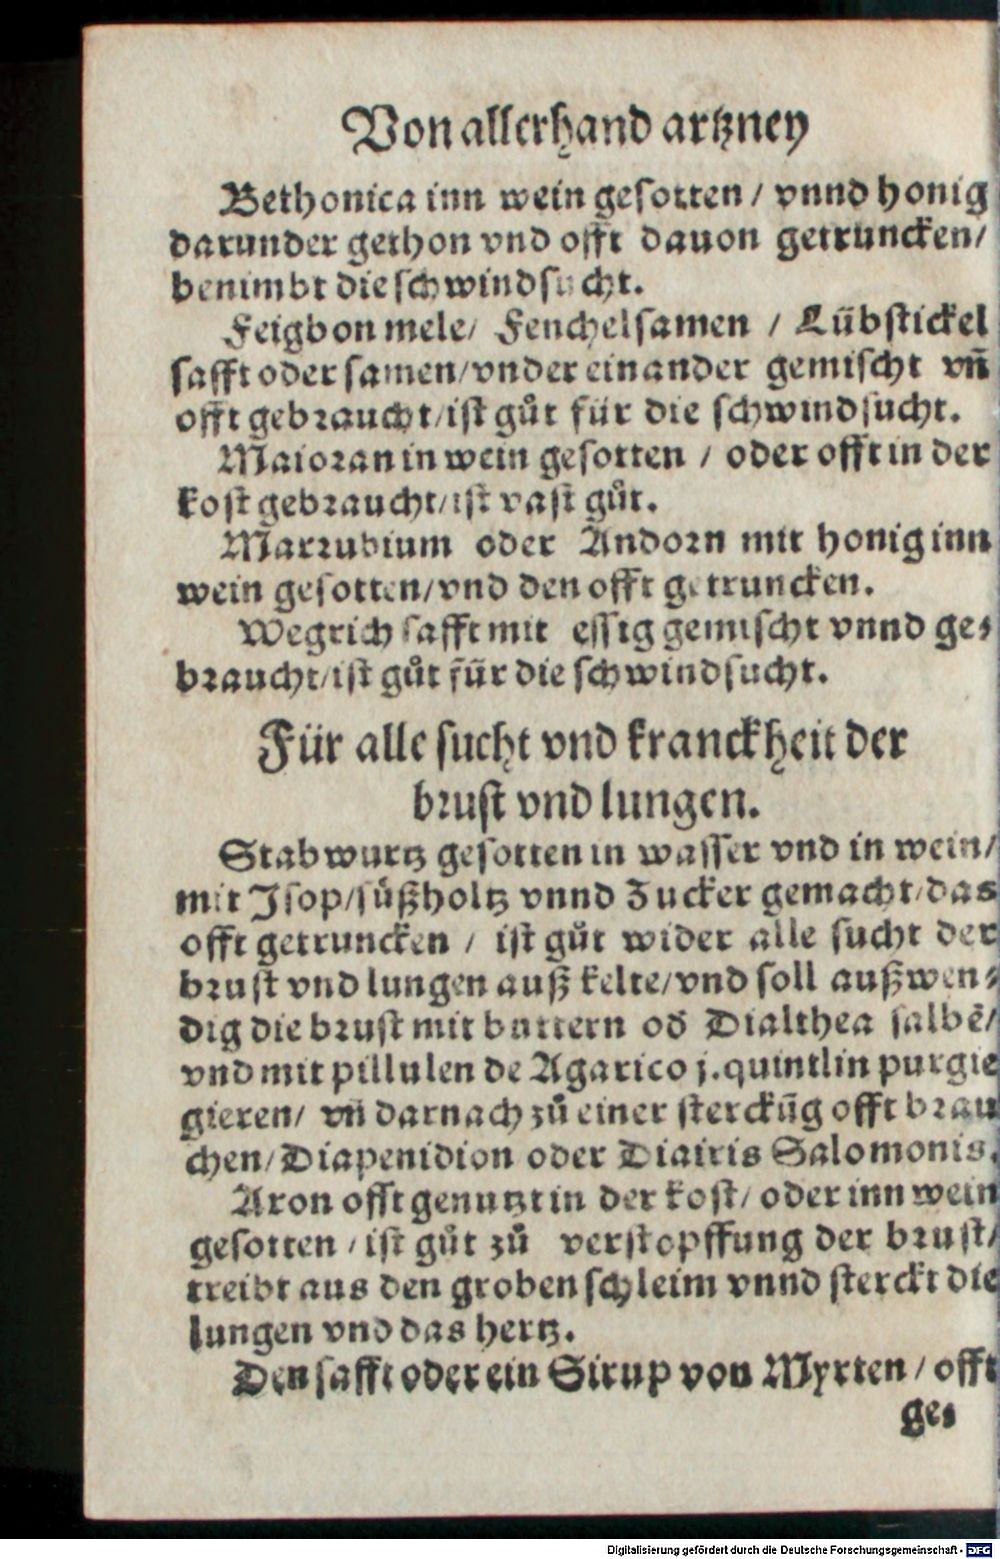 Von allerhand artzney
Bethonica inn wein gesotten / vnnd honig
darunder gethon vnd offt dauon getruncken/
benimbt die schwindsucht.
Feigbon mele/ Fenchelsamen / Lübstickel
safft oder samen/vnder einander gemischt vn̄
offt gebraucht/ist gůt für die schwindsucht.
Maioran in wein gesotten / oder offt in der
kost gebraucht/ist vast gůt.
Marrubium oder Andorn mit honig inn
wein gesotten/vnd den offt getruncken.
Wegrich safft mit essig gemischt vnnd ge⸗
braucht/ist gůt für die schwindsucht.
Für alle sucht vnd kranckheit der
brust vnd lungen.
Stabwurtz gesotten in wasser vnd in wein/
mit Isop/süßholtz vnnd Zucker gemacht/das
offt getruncken / ist gůt wider alle sucht der
brust vnd lungen auß kelte/vnd soll außwen⸗
dig die brust mit buttern od̄ Dialthea salbē/
vnd mit pillulen de Agarico j.quintlin purgie
gieren/ vn̄ darnach zů einer sterckūg offt brau
chen/Diapenidion oder Diairis Salomonis.
Aron offt genutzt in der kost/ oder inn wein
gesotten / ist gůt zů verstopffung der brust/
treibt aus den groben schleim vnnd sterckt die
lungen vnd das hertz.
Den safft oder ein Sirup von Myrten / offt
ge⸗
Digitalisierung gefördert durch die Deutsche Forschungsgemeinschaft - DFG